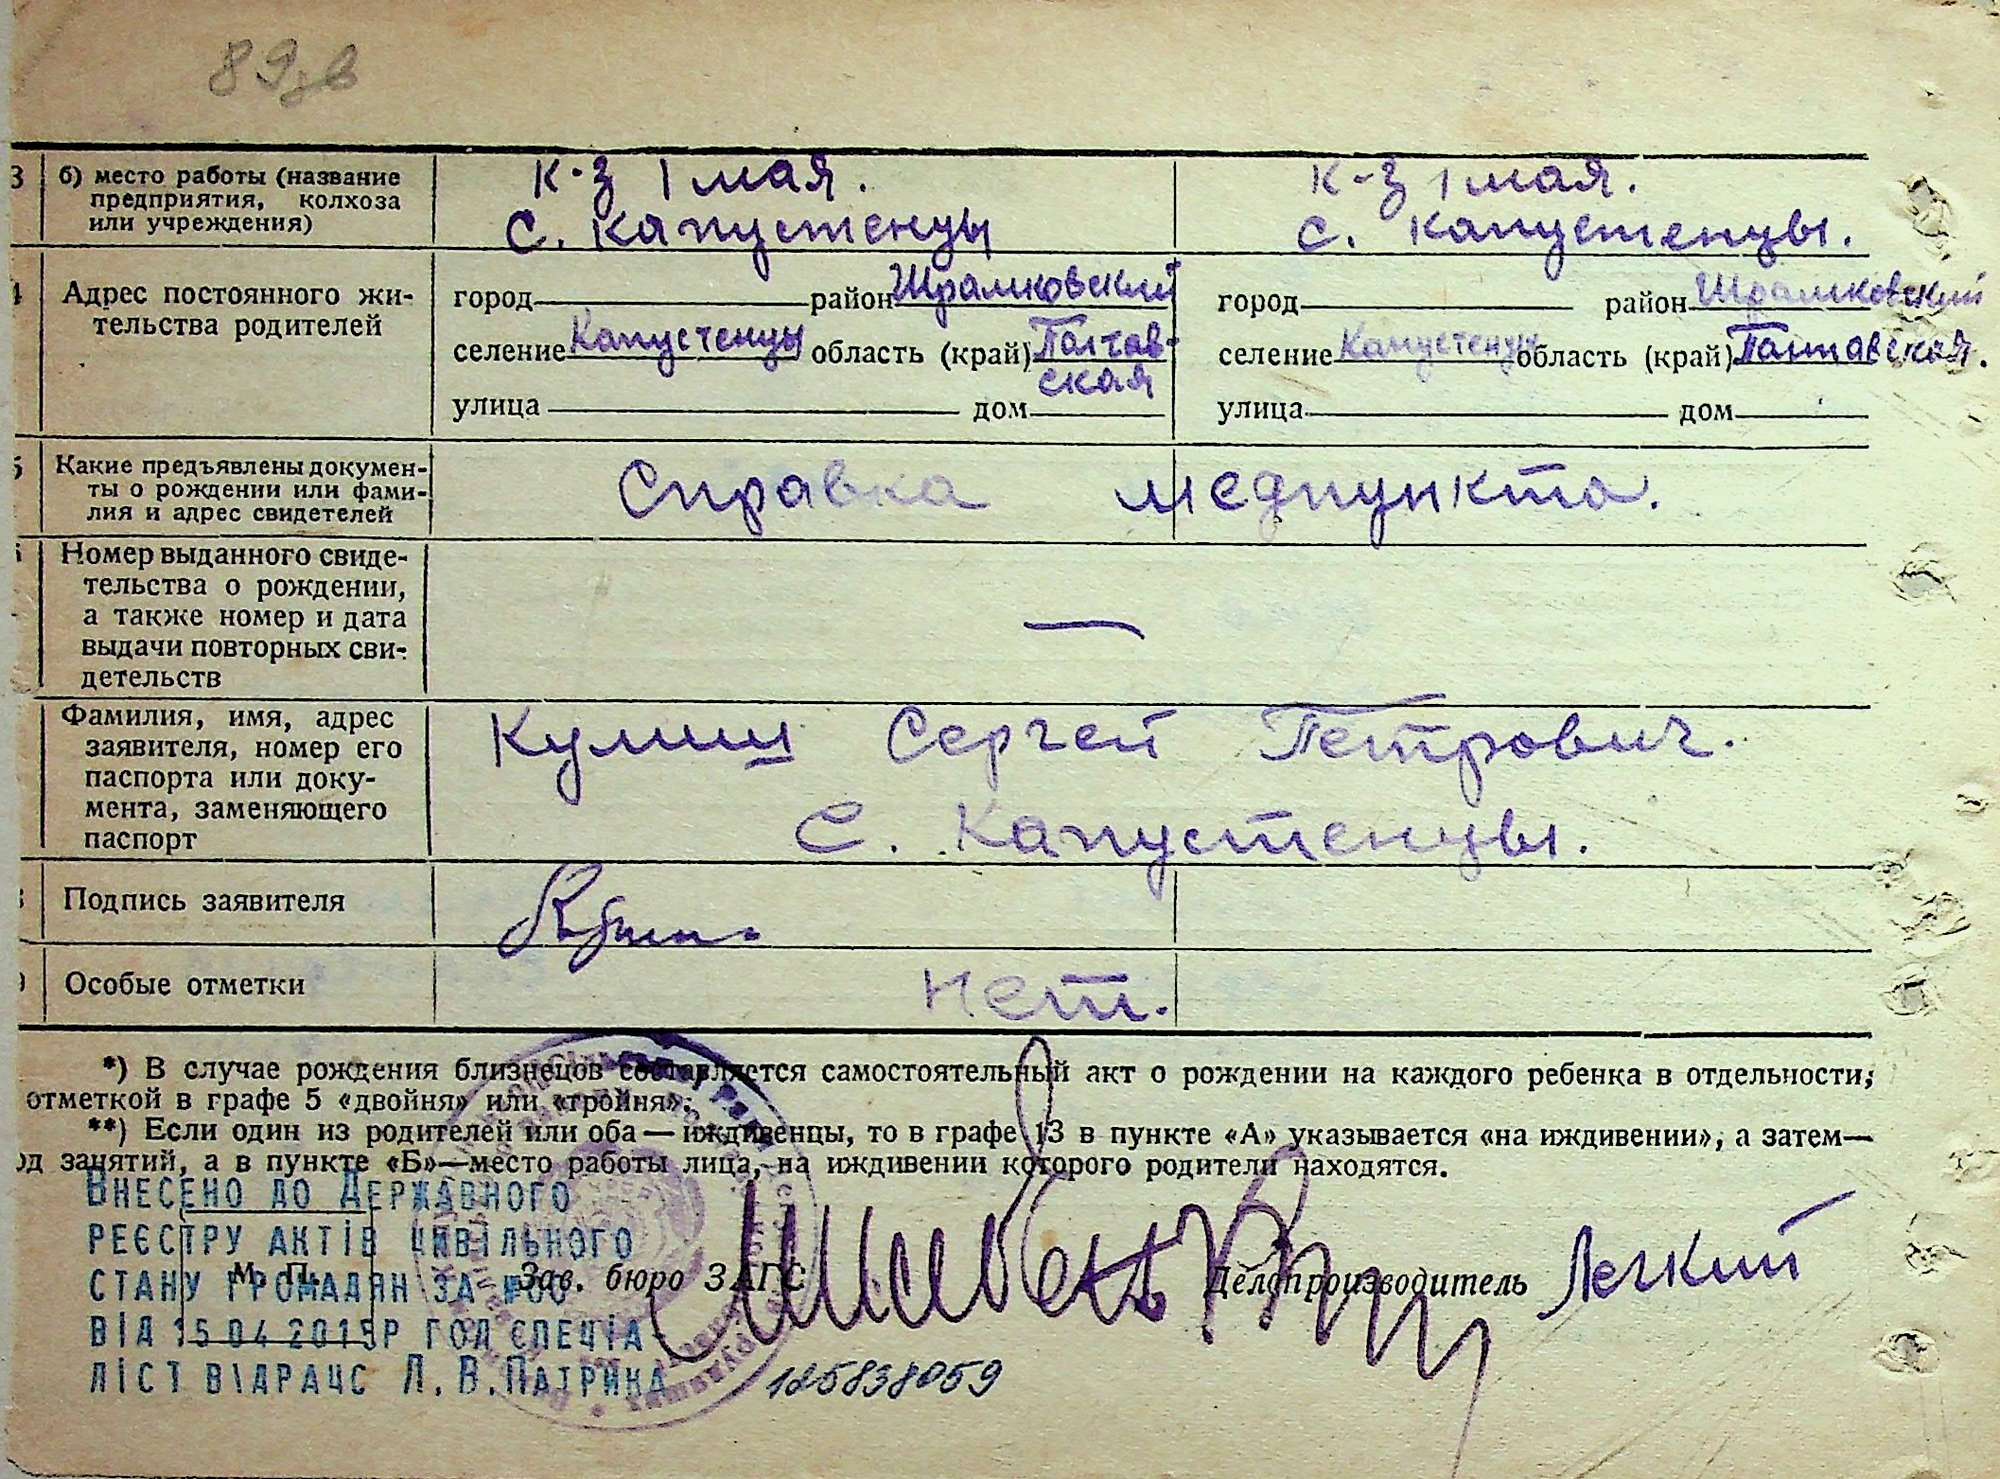 89зв
3 б) место работы (название предприятия, колхоза или учреждения)
к-з 1 мая.
с. Капустенцы
к-з 1 мая.
с. Капустенцы.
4 Адрес постоянного жи-
тельства родителей
город район Шрамковский
селение Капустенцы область (край) Полтав-
ская
улица дом
город район Шрамковский
селение Капустенцы область (край) Полтавская.
улица дом
5 Какие предъявлены докумен-
ты о рождении или фами-
лия и адрес свидетелей
Справка медпункта.
Номер выданного свиде-
тельства о рождении,
а также номер и дата
выдачи повторных сви-
детельств
—
Фамилия, имя, адрес
заявителя, номер его
паспорта или доку-
мента, заменяющего
паспорт
Кулиш Сергей Петрович.
с. Капустенцы.
Подпись заявителя
Особые отметки
нет.
*) В случае рождения близнецов составляется самостоятельный акт о рождении на каждого ребенка в отдельности,
отметкой в графе 5 «двойня» или «тройня».
**) Если один из родителей или оба — иждивенцы, то в графе 13 в пункте «А» указывается «на иждивении», а затем—
од занятий, а в пункте «Б»—место работы лица, на иждивении которого родители находятся.
Внесено до Державного
реєстру актів цивільного
стану громадян за №00
від 15 04 2015р гол спеціа
ліст відрацс Л.В.Патрика
125838059
М. П.
Зав. бюро ЗАГС
Делопроизводитель Легкий